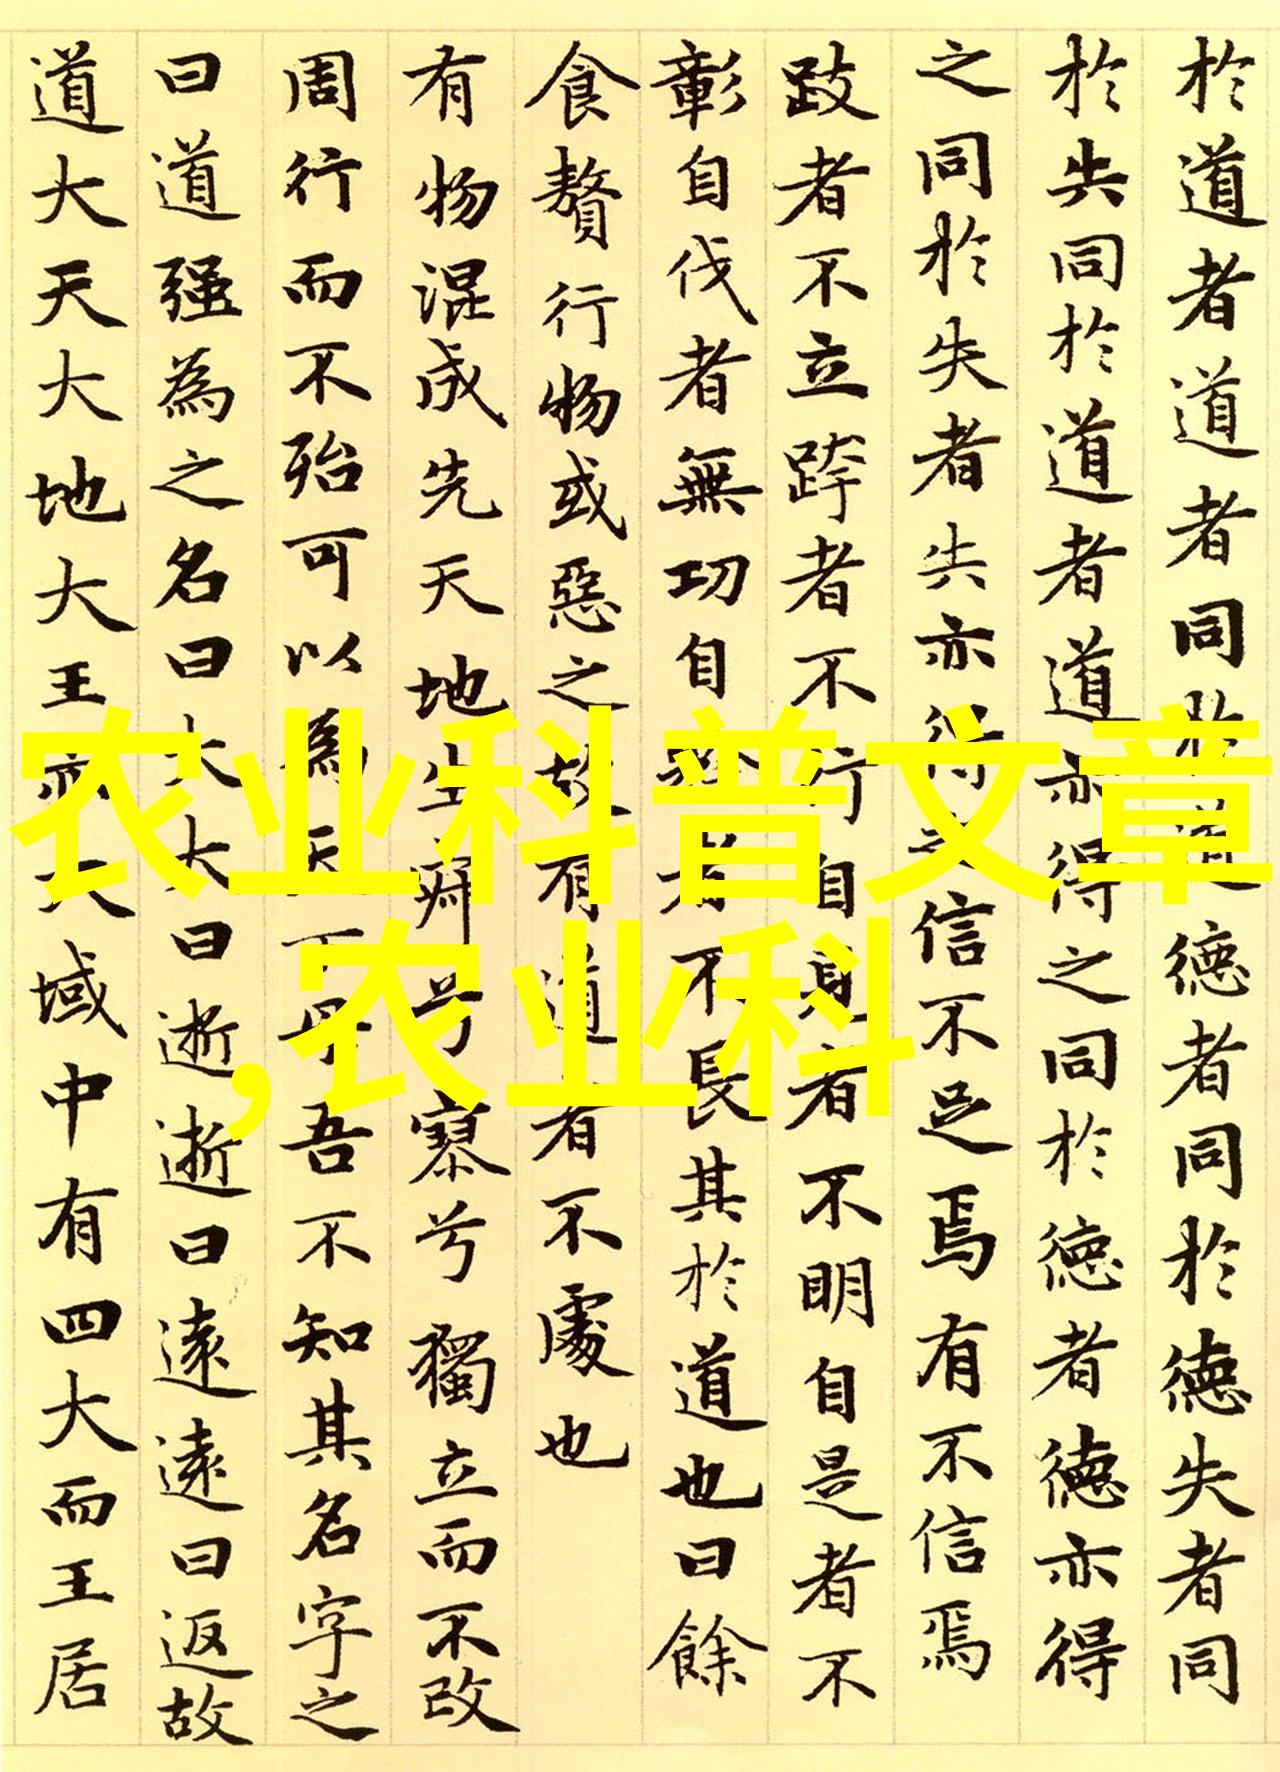 於道者道者同於道德者同於德失者同
於失同於道者道亦得之同於德者德亦得
之同於失者失亦得之信不足焉有不信焉
跂者不立跨者不行自見者不明自是者不
彰自伐者無功自矜者不長其於道也曰餘
食贅行物或惡之故有道者不處也
有物混成先天地生寂兮寥兮獨立而不改
周行而不殆可以為天下母吾不知其名字之
曰道强為之名曰大大曰逝逝曰遠遠曰返故
道大天大地大王亦大域中有四大而王居
农业科普文章
,农业科